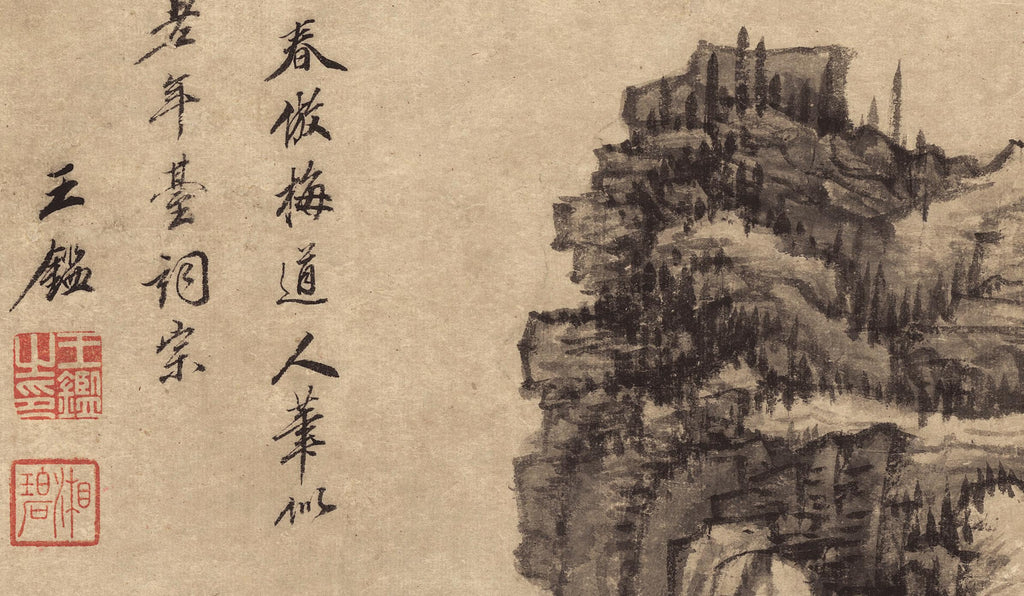 春倣梅道人筆似
年臺詞宗
王鑑
王鑑之印
湘碧